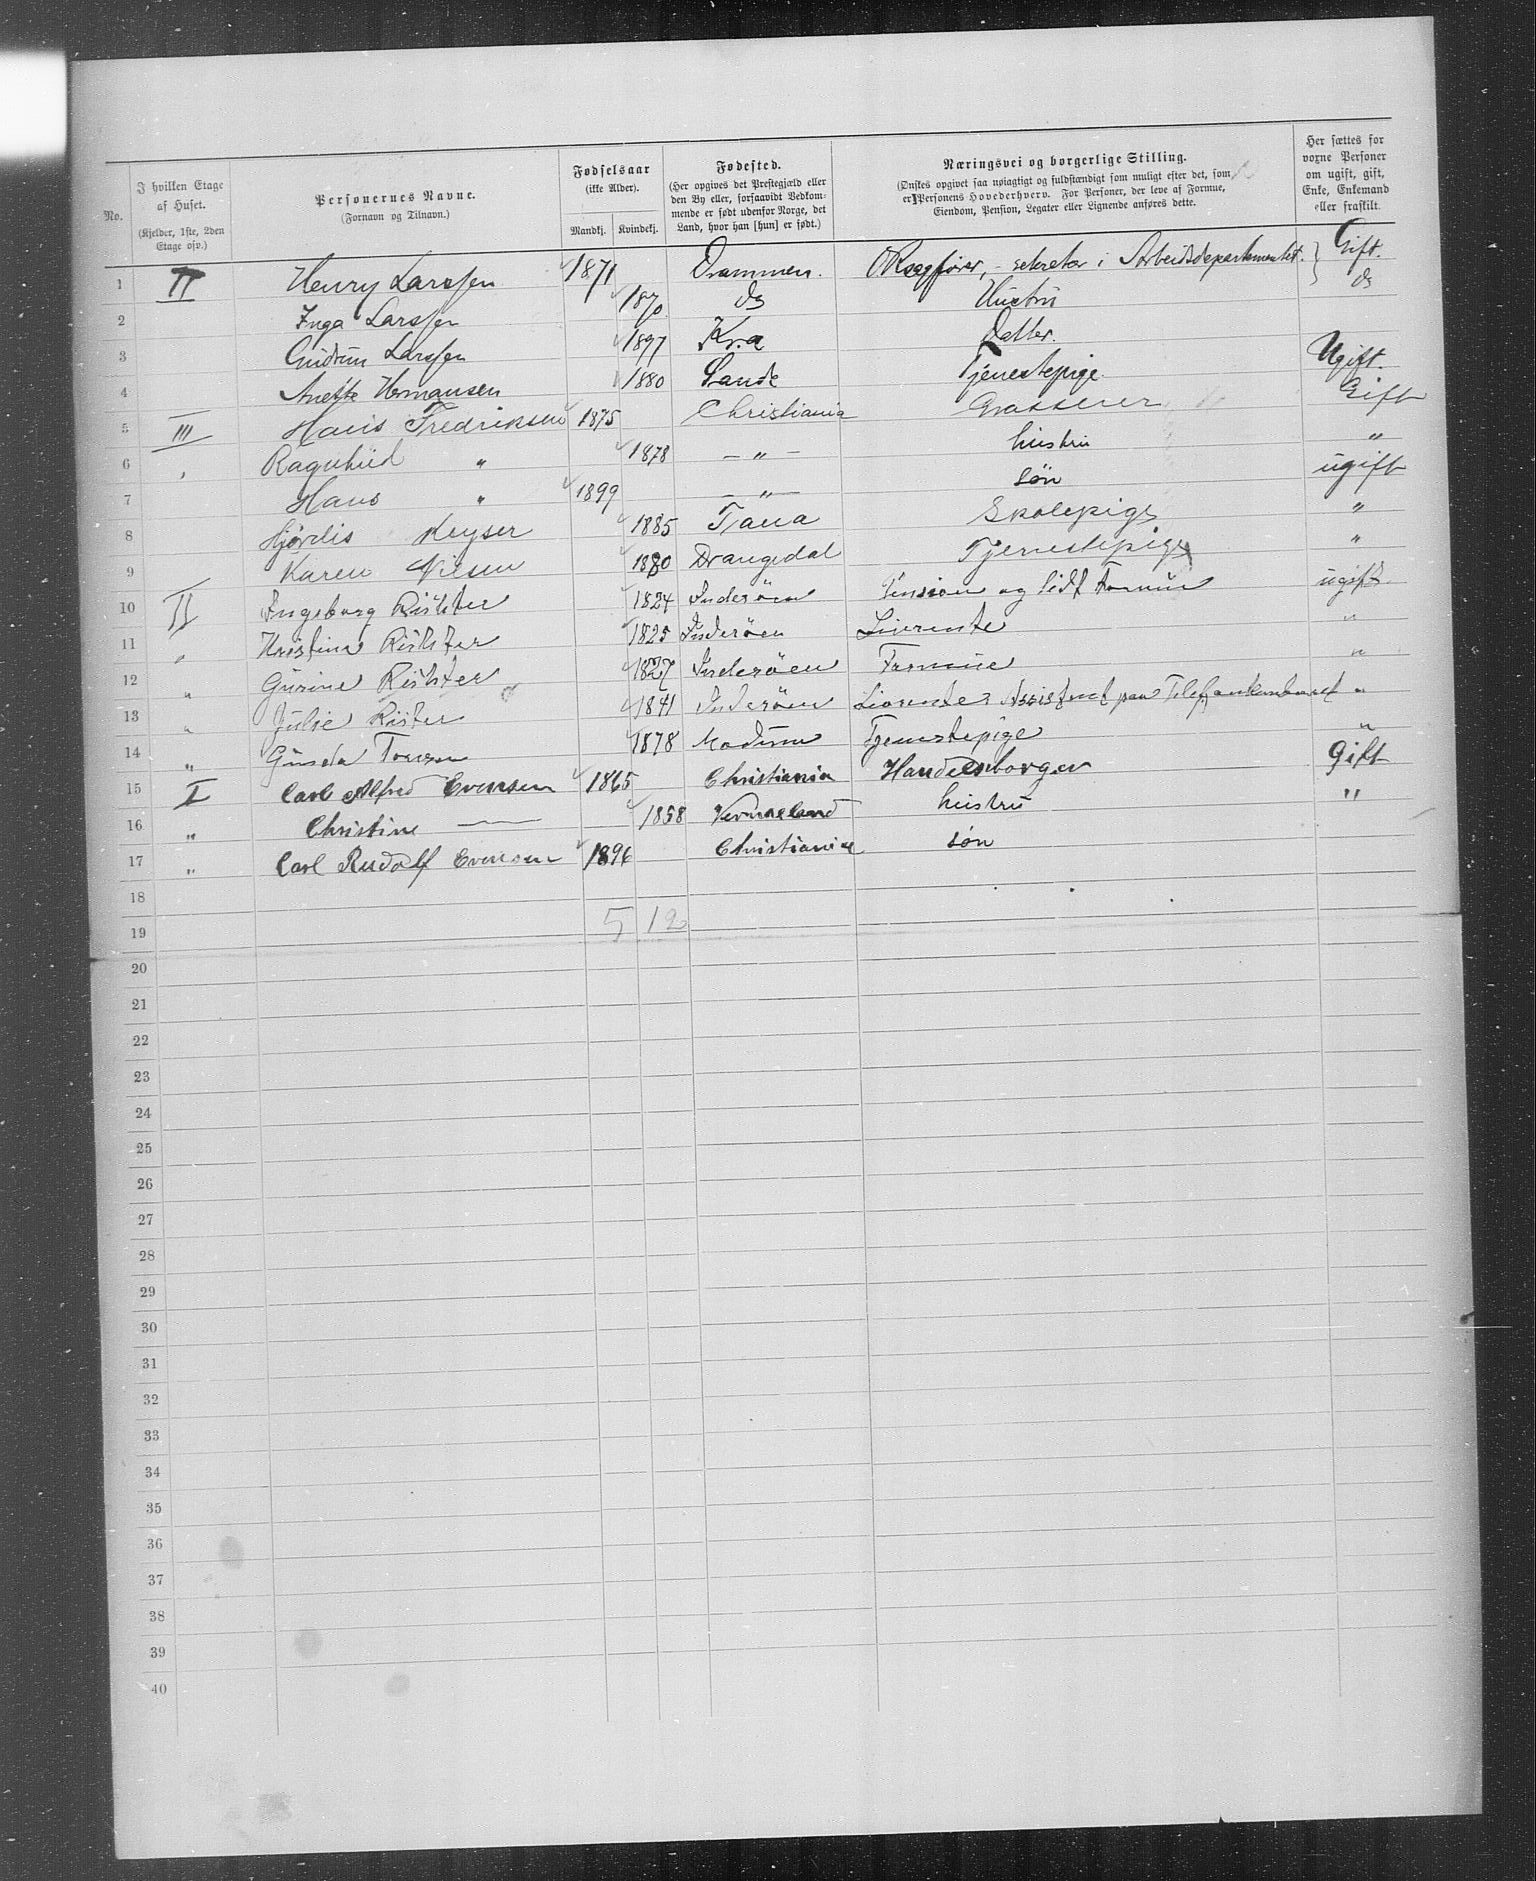 No.
I hvilken Etage af Huset.
(Kjelder, 1ste, 2den Etage osv.)
Personernes Navne.
(Fornavn og Tilnavn.)
Fødselsaar
(ikke Alder).
Mandkj. Kvindekj.
Fødested.
(Her opgives det Prestegjæld eller den By eller, forsaavidt Vedkommende er født udenfor Norge, det Land, hvor han [hun] er født.)
Næringsvei og borgerlige Stilling.
(Ønskes opgivet saa nøiagtigt og fuldstændigt som muligt efter det, som er Personens Hovederhverv. For Personer, der leve af Formue, Eiendom, Pension, Legater eller Lignende anføres dette.
Her sættes for voxne Personer om ugift, gift, Enke, Enkemand eller fraskilt.
1 II Henry Larssen 1871 Drammen. Sagfører, - sekretær i Arbeidsdepartementet. Gift.
2 Inga Larssen 1870 do Hustru do
3 Gudrun Larssen 1897 Kr.a Datter.
4 Anette Hermansen 1880 Sande Tjenestepige. Ugift.
5 III Hans Fredriksen 1875 Christiania Grosserer Gift
6 " Ragnhild " 1878 - " - hustru "
7 Hans " 1899 - " - søn ugift
8 Hjørdis Keyser 1885 Tana Skolepige "
9 Karen Nilsen 1880 Drangedal Tjenestepige "
10 II Ingeborg Richter 1824 Inderøen Pension og lidt Formue ugift.
11 " Kristine Richter 1825 Inderøen Livrente "
12 " Gurine Richter 1827 Inderøen Formue "
13 " Julie Richter 1841 Inderøen Livrente Assistent paa Telefonkontoret "
14 " Gunda 1878 Modum Tjenestepige "
15 I Carl Alfred Evensen 1865 Christiania Handelsborger Gift
16 " Christine — 1858 Vermeland hustru "
17 " Carl Rudolf Evensen 1896 Christiania søn
18
19 5 12
20
21
22
23
24
25
26
27
28
29
30
31
32
33
34
35
36
37
38
39
40